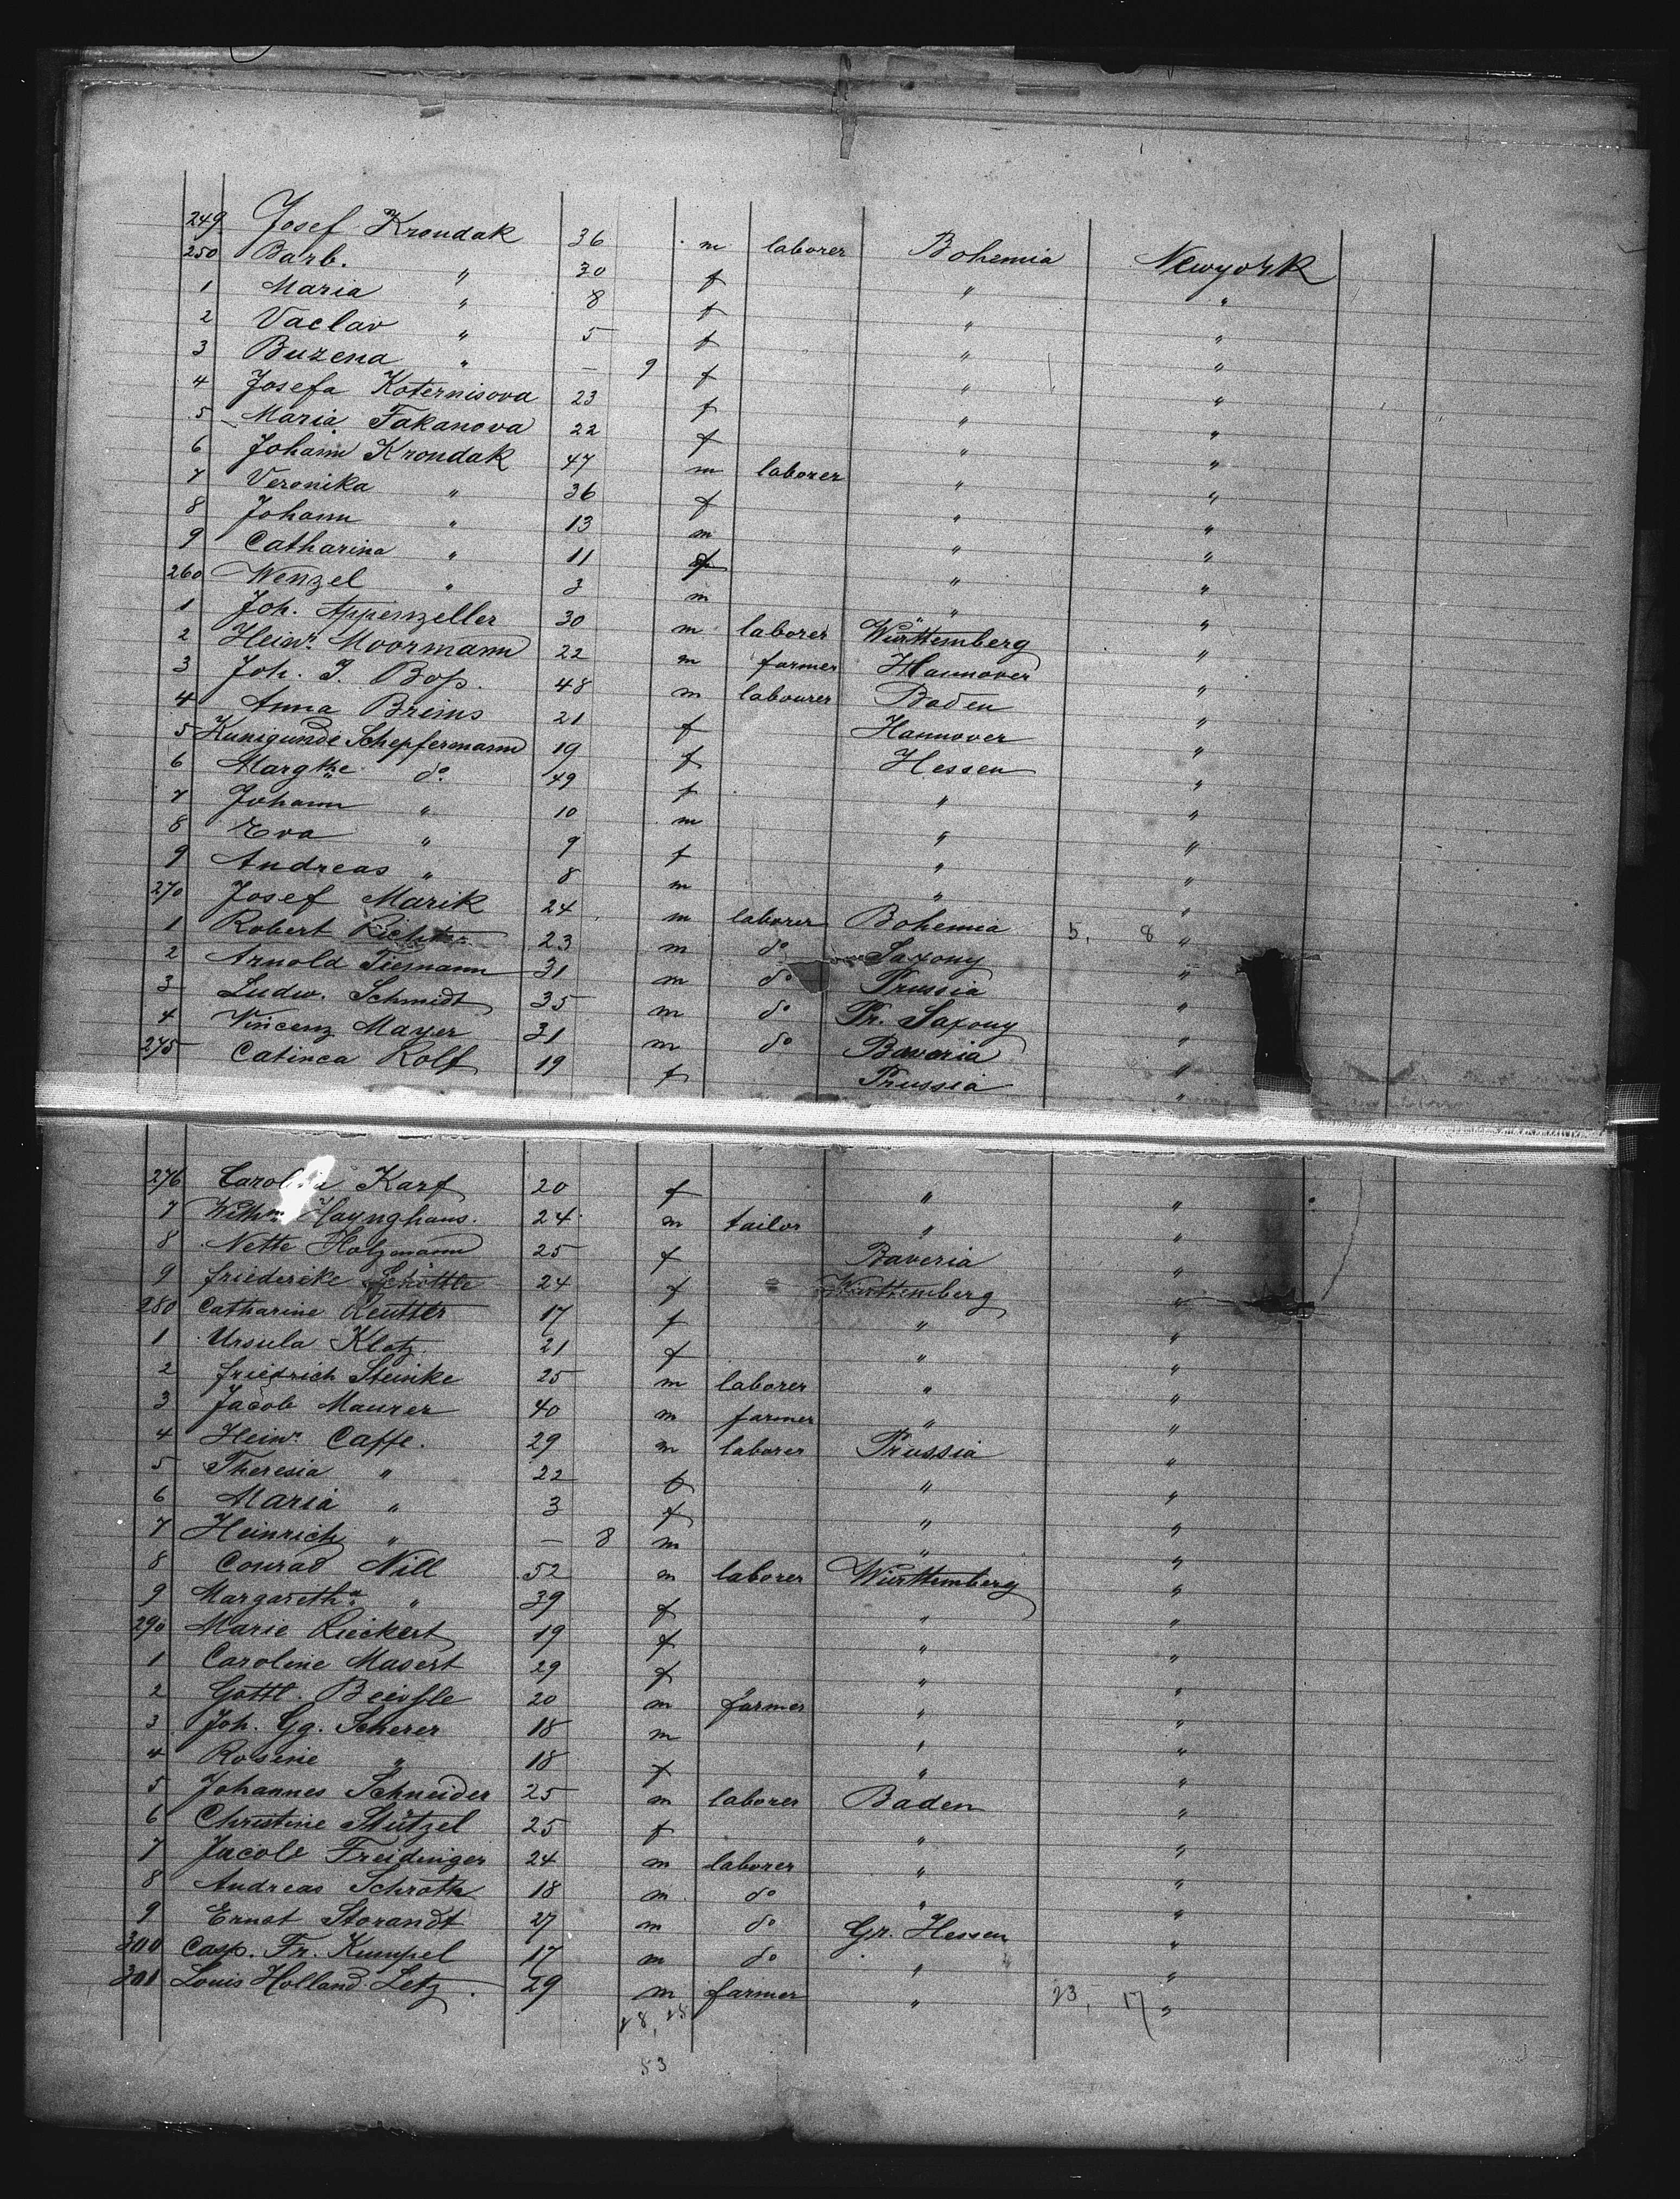 249 Josef Kroudak 36 m laborer Bohemia Newyork
250 Barb. " 30 f " "
1 Maria " 8 f " "
2 Vaclav " 5 f " "
3 Buzena " — 9 f " "
4 Josefa Koternisova 23 f " "
5 Maria Fakanova 22 f " "
6 Johann Kroudak 47 m laborer " "
7 Veronika " 36 f " "
8 Johann " 13 m " "
9 Catharina " 11 f " "
260 Wenzel " 3 m " "
1 Joh. Appenzeller 30 m laborer Württemberg "
2 Heinr. Moormann 22 m farmer Hannover "
3 Joh. J. Boss 48 m labourer Baden "
4 Anna Breins 21 f Hannover "
5 Kunigunde Schepfermann 19 f Hessen "
6 Margthe do. 49 f " "
7 Johann " 10 m " "
8 Eva " 9 f " "
9 Andreas " 8 m " "
270 Josef Marik 24 m laborer Bohemia 5, 8 "
1 Robert Richter 23 m do Saxony "
2 Arnold Tiemann 31 m do Prussia "
3 Ludw. Schmidt 35 m do Pr. Saxony "
4 Vincenz Mayer 31 m do Baveria "
275 Catinca Rolf 19 f Prussia "
276 Karf 20 f " "
7 Wilhm. Haynghaus. 24 m tailor " "
8 Nette Holzmann 25 f Baveria "
9 friedericke Schöttle 24 f Württemberg "
280 Catharine Reutter 17 f " "
1 Ursula Klotz 21 f " "
2 friedrich Steinke 25 m laborer " "
3 Jacob Maurer 40 m farmer " "
4 Heinr. Caffe. 29 m laborer Prussia "
5 Theresia " 22 f " "
6 Maria " 3 f " "
7 Heinrich " — 8 m " "
8 Conrad Nill 52 m laborer Württemberg "
9 Margaretha " 39 f " "
290 Marie Rieckert 19 f " "
1 Caroline Masert 29 f " "
2 Gottl. Beissle 20 m farmer " "
3 Joh. Gg. Scherer 18 m " "
4 Rosine " 18 f " "
5 Johannes Schneider 25 m laborer Baden "
6 Christine Stützel 25 f " "
7 Jacob Freidinger 24 m laborer " "
8 Andreas Schroth 18 m do " "
9 Ernst Storandt 27 m do Gr. Hessen "
300 Casp. Fr. Kumpel 17 m do " "
301 Louis Holland-Letz. 29 m farmer " 23, 17 "
28, 25
53